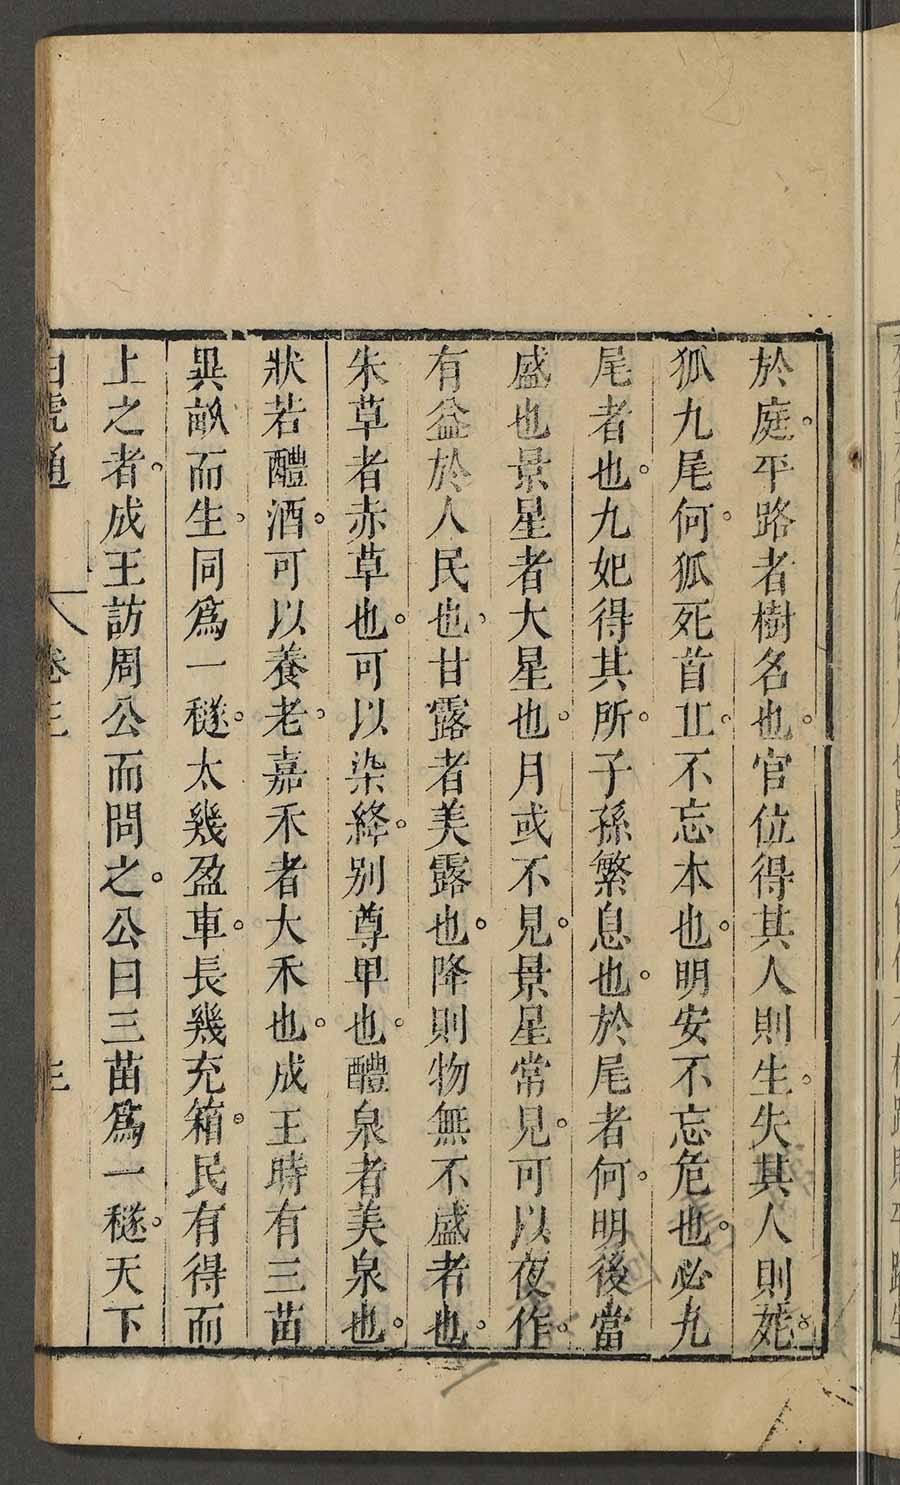 於庭。平路者樹名也。官位得其人則生。失其人則死。
狐九尾何。狐死首丘。不忘本也。明安不忘危也。必九
尾者也。九妃得其所。子孫繁息也。於尾者何。明後當
盛也景星者大星也。月或不見。景星常見。可以夜作。
有益於人民也、甘露者美露也。降則物無不盛者也。
朱草者赤草也。可以染絳。別尊卑也。醴泉者美泉也。
狀若醴酒。可以養老。嘉禾者大禾也。成王時有三苗
異畝而生、同爲一穟。太幾盈車。長幾充箱。民有得而
上之者。成王訪周公而問之。公曰三苗爲一穟。天下
白虎通 卷三